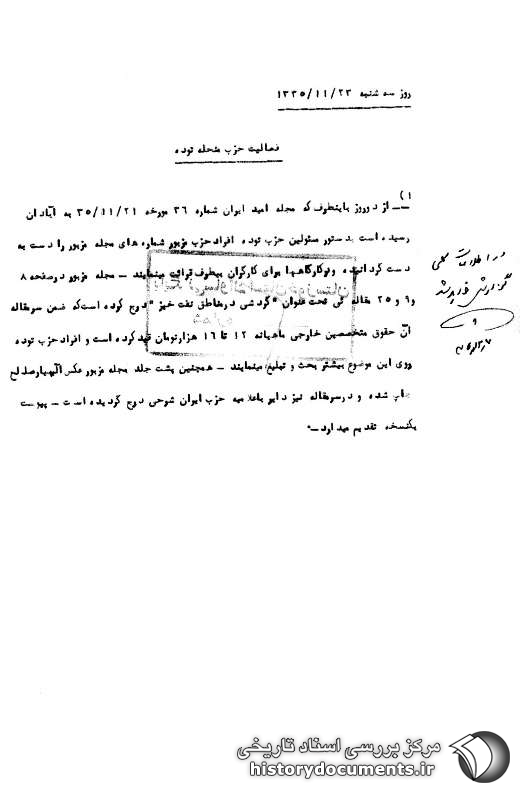 روز سه شنبه ۱۳۳۵/۱۱/۲۳
فعالیت حزب منحله توده
۱)
ــ از دوروز باینطرف که مجله امید ایران شماره ۳۶ مورخه ۳۵/۱۱/۲۱ به آبادان
رسیده است بدستور مسئولین حزب توده افراد حزب مزبور شماره های مجله مزبور را دست به
دست گردانیده و درکارگاهها برای کارگران بیطرف قرائت مینمایند ــ مجله مزبور درصفحه ۸
و۹ و ۲۵ مقاله ئی تحت عنوان " گردشی در مناطق نفت خیز " درج کرده است که ضمن سرمقاله
آن حقوق متخصصین خارجی ماهیانه ۱۲ تا ۱۶ هزارتومان قید کرده است و افراد حزب توده
روی این موضوع بیشتر بحث و تبلیغ مینمایند ــ همچنین پشت جلد مجله مزبور عکس الهیار صالح
چاپ شده و در سرمقاله نیز دایر باعلامیه حزب ایران شرحی درج گردیده است ــ پیوست
یکنسخه تقدیم میدارد ــ
در اطلاعات کلی
گزارش
مرکز بررسی اسناد تاریخی
historydocuments.ir